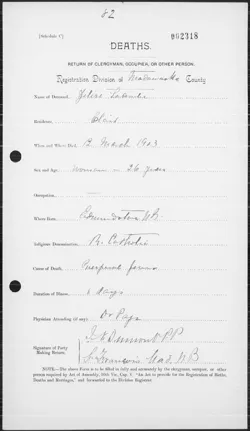 82
[Schedule C]
062318
DEATHS.
RETURN OF CLERGYMAN, OCCUPIER, OR OTHER PERSON.
Registration Division of Madawaska County
Name of Deceased,
Residence, Clair
When and Where Died, March 1903
Sex and Age, 26 years
Occupation,
Where Born, Edmundston NB
Religious Denomination, R. Catholic
Cause of Death, Puerperal fever
Duration of Illness, days
Physician Attending (if any), Dr Page
Dumont PP
Signature of Party
Making Return. St Francois Mad. NB
NOTE.—The above Form is to be filled in fully and correctly by the clergyman, occupier, or other
person required by Act of Assembly, 50th Vic. Cap. 5 "An Act to provide for the Registration of Births,
Deaths and Marriages," and forwarded to the Division Registrar.